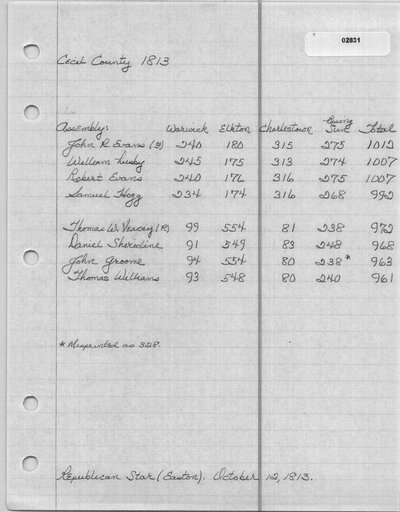 02831
Cecil County 1813
Assembly: Warwick Elkton Charlestown Rising Sun Total
John R. Evans (F) 240 180 315 275 1012
William Lusby 245 175 313 274 1007
Robert Evans 240 176 316 275 1007
Samuel Hogg 234 174 316 268 992
Thomas W. Veazey (R) 99 554 81 238 972
Daniel Sheredine 91 549 83 248 968
John Groome 94 554 80 238* 963
Thomas Williams 93 548 80 240 961
* Misprinted as 328.
Republican Star (Easton). October 12, 1813.